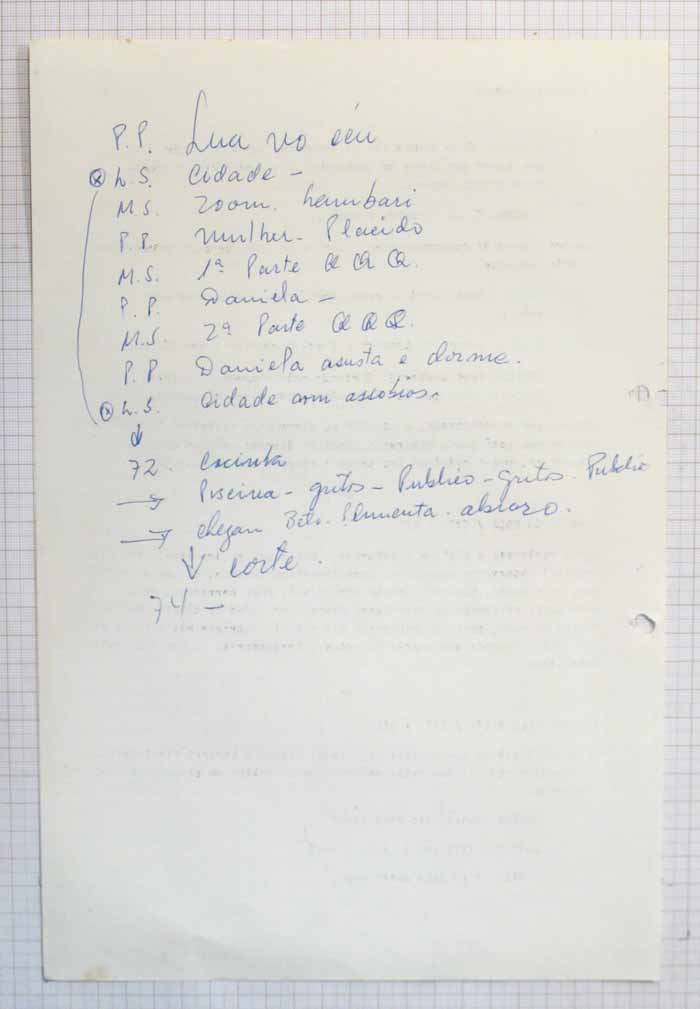 P.P. Lua no céu
L.S. Cidade -
M.S. Zoom. Lambari
P.P. Mulher - Placido
M.S. 1ª Parte
P.P. Daniela -
M.S. 2ª Parte
P.P. Daniela asusta e dorme.
L.S. Cidade com assobios.
72
Piscina - gritos - Publico - gritos. Publico
chegam Beto. Pimenta. abraço.
corte.
74 -